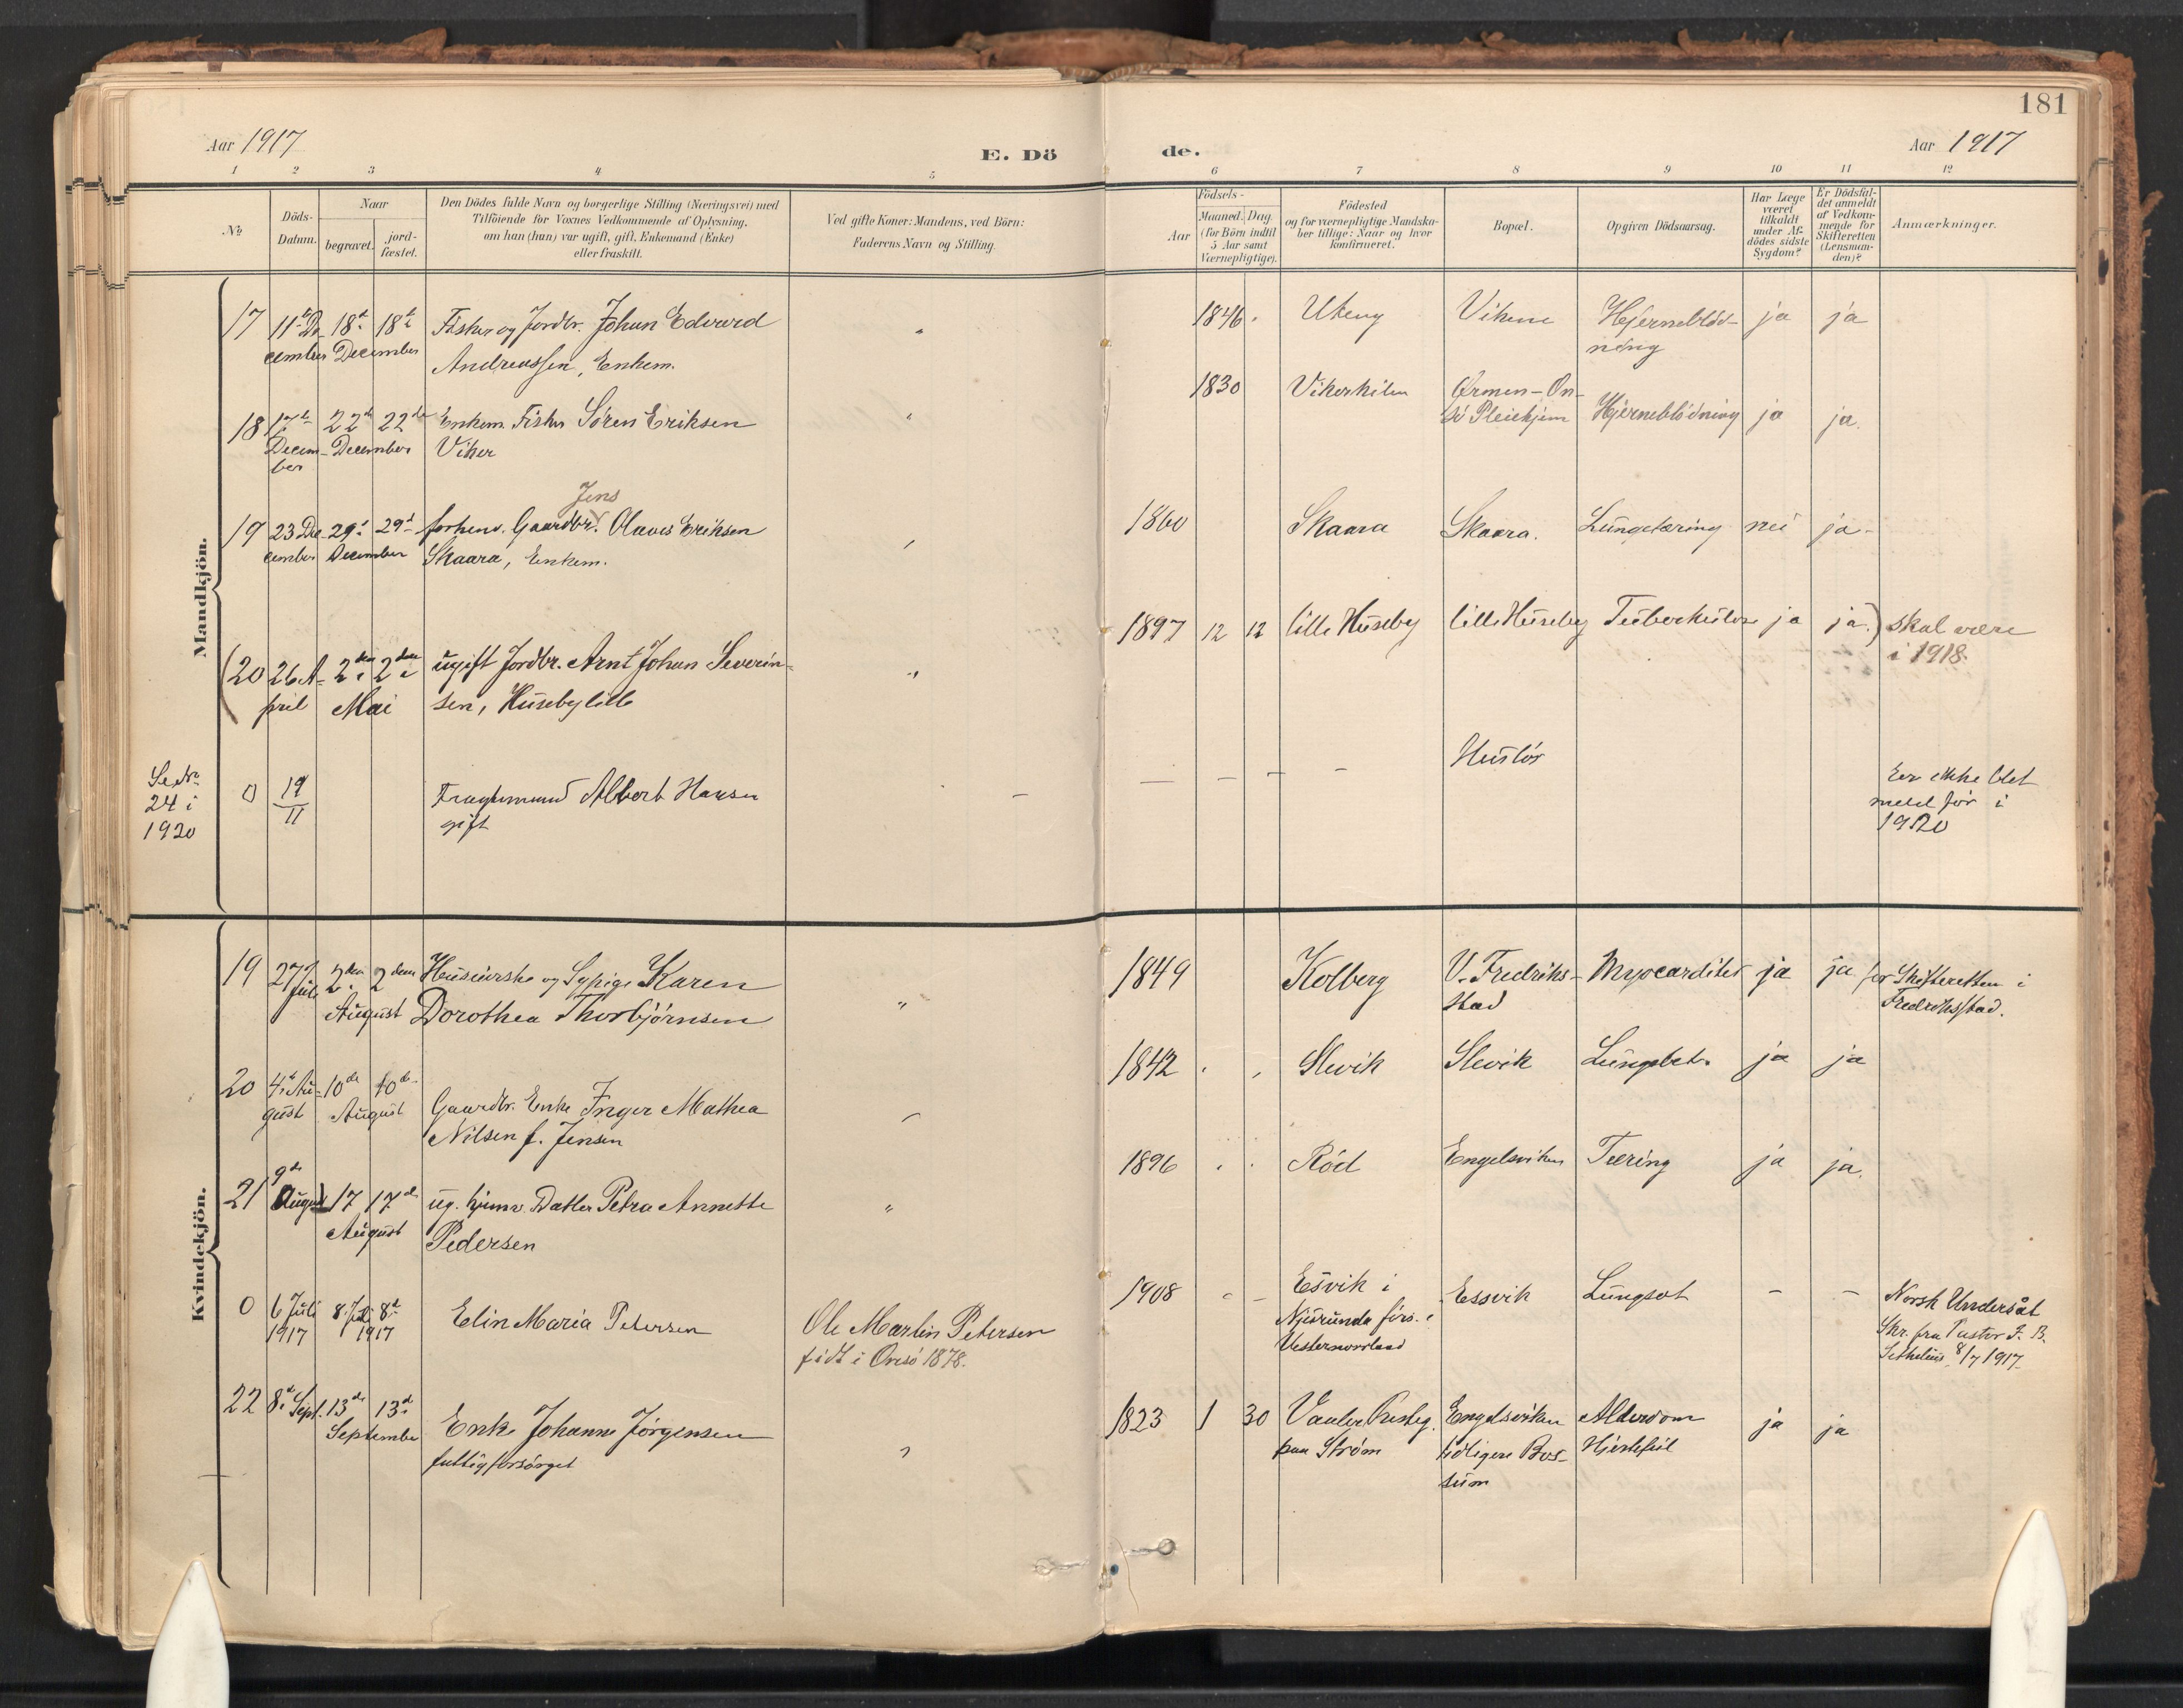 181
Aar 1917
E. Dö
de.
Aar 1917
1 2 3 4 5 6 7 8 9 10 11 12
No
Döds-
Datum.
Naar
begravet.
jord-
fæstet.
Den Dödes fulde Navn og borgerlige Stilling (Næringsvei) med
Tilföiende for Voxnes Vedkommende af Oplysning.
om han (hun) var ugift, gift, Enkemand (Enke)
eller fraskilt.
Ved gifte Koner: Mandens, ved Börn:
Faderens Navn og Stilling.
Aar
Födsels-
Maaned. Dag.
(for Börn indtil
5 Aar samt
Værnepligtige).
Födested
og for værnepligtige Mandska-
ber tillige: Naar og hvor
konfirmeret.
Bopæl.
Opgiven Dödsaarsag.
Har Læge
været
tilkaldt
under Af-
dödes sidste
Sygdom?
Er Dödsfal-
det anmeldt
af Vedkom-
mende for
Skifteretten
(Lensman-
den)?
Anmærkninger.
Mandkjön.
17 11te De- 18de 18de Fisker og Jordbr. Johan Edvard " 1846 Ukeng Vikene Hjerneblöd- ja ja
cember December Andreassen, Enkem. ning
18 17de 22de 22de Enkem. Fisker Sören Eriksen " 1830 Vikerkilen Ørmen-On- Hjerneblödning ja ja.
Decem- December Viker sö Pleiehjem
ber
Jens
19 23 De- 29de 29de forhenv. Gaardbr. Olaves Eriksen 1860 Skaara Skaara. Lungetæring nei ja
cember December Skaara, Enkem.
(20 26 A- 2den 2den ugift Jordbr. Arnt Johan Severin- 1897 12 12 lille Huseby lille Huseby Tuberkulose ja ja.) skal være
pril Mai sen, Huseby lille i 1918.
Se No
24 i
1920
0 19/11 Fragtemand Albert Hansen — — — — — Huslös Er ikke blet
gift meld för i
1920
Kvindekjön.
19 27/ 2den 2den Huseierske og Sypige Karen " 1849 Kolberg V. Fredriks- Myocarditis ja ja for Skifteretten i
Juli August Dorothea Thorbjörnsen stad Fredriksstad.
20 4de Au- 10de 10de Gaardbr. Enke Inger Mathea 1842 Slevik Slevik Lungebet. ja ja
gust August Nilsen f. Jensen
21 9de August 17 17de ug. hjemv. Datter Petra Annette " 1896 Röd Engelsviken Tæring ja ja.
August Pedersen
0 6 Juli 8. Juli 8de Elin Maria Petersen Ole Martin Petersen 1908 - - Esvik i Essvik Lungsot - - Norsk Undersåt
1917 1917 född i Onsö 1878. Njurunda förs. i Skr. fra Pastor F. B.
Vesternorrland 8/7 1917
22 8de Sept. 13de 13de Enke Johanne Jörgensen 1823 1 30 Vauler Presteg. Engelsviken Alderdom ja ja
September fattigforsörget paa Ström tidligere Bos- Hjertefeil
sum